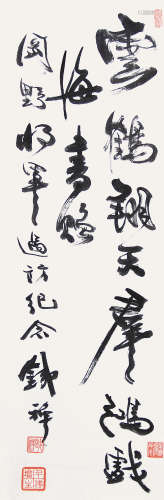 雲鶴翔天羣鴻戲
海書贈
岡野將軍過訪紀念鐵禪